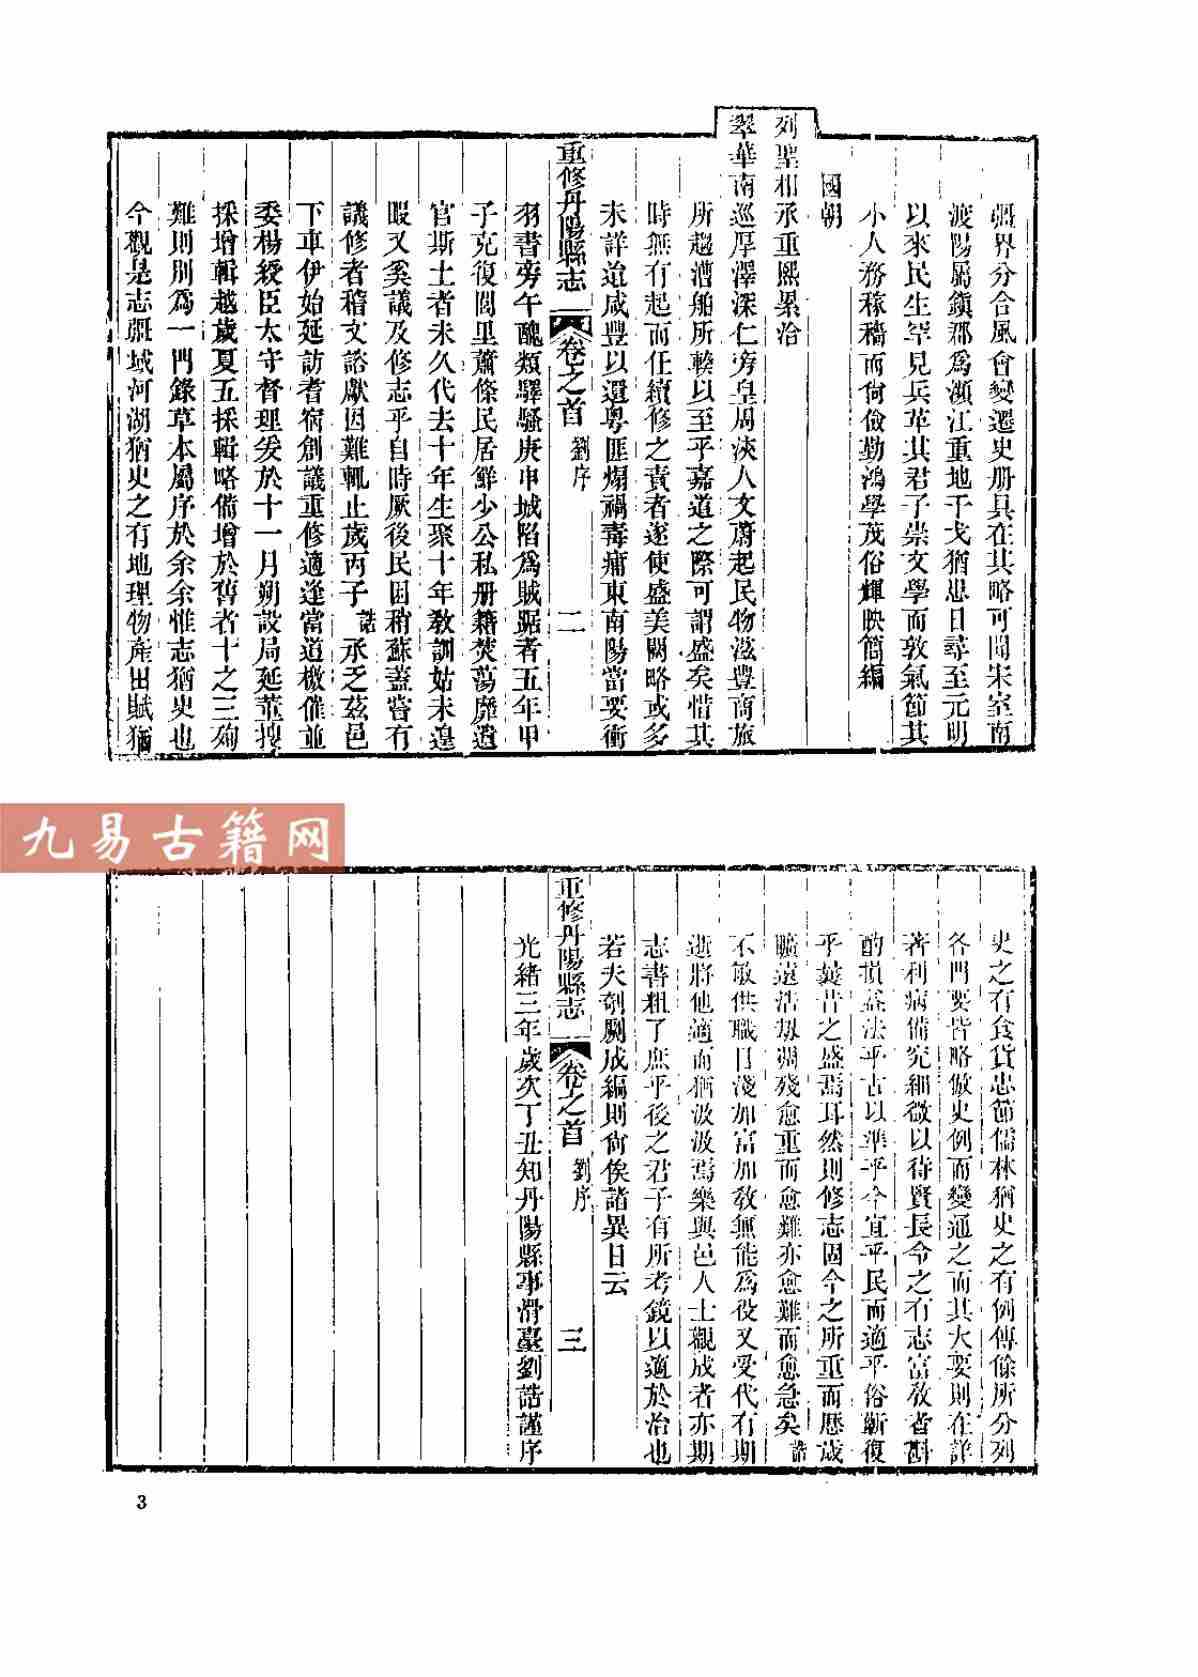 疆界分合風會變遷史册具在其略可聞宋室南
渡陽屬鎮郡爲瀕江重地干戈猶思日尋至元明
以來民生罕見兵革其君子崇文學而敦氣節其
小人務稼穡而尙儉勤鴻學茂俗輝映簡編
國朝
列聖相承重熙累洽
翠華南巡厚澤深仁旁皇周浹人文蔚起民物滋豐商旅
所趨漕舶所輳以至乎嘉道之際可謂盛矣惜其
時無有起而任續修之責者遂使盛美闕略或多
未詳迨咸豐以還粤匪煽禍毒痡東南陽當要衝
重修丹陽縣志 卷之首 劉序 二
羽書旁午醜類驛騷庚申城陷爲賊踞者五年甲
子克復閭里蕭條民居鮮少公私册籍焚蕩靡遺
官斯土者未久代去十年生聚十年敎訓姑未遑
暇又奚議及修志乎自時厥後民困稍蘇蓋嘗有
議修者稽文諮獻因難輒止歲丙子誥承乏茲邑
下車伊始延訪耆宿創議重修適逢當道檄催並
委楊綬臣太守督理爰於十一月朔設局延董搜
採增輯越歲夏五採輯略備增於舊者十之三殉
難則別爲一門錄草本屬序於余余惟志猶史也
今觀是志疆域河湖猶史之有地理物產田賦猶
史之有食貨忠節儒林猶史之有列傳餘所分列
各門要皆略倣史例而變通之而其大要則在詳
著利病備究細微以待賢長令之有志富敎者斟
酌損益法乎古以準乎今宜乎民而適乎俗蘄復
乎曩昔之盛焉耳然則修志固今之所重而歷歲
曠遠浩刼凋殘愈重而愈難亦愈難而愈急矣誥
不敏供職日淺加富加敎無能爲役又受代有期
逝將他適而猶汲汲焉樂與邑人士觀成者亦期
志書粗了庶乎後之君子有所考鏡以適於治也
若夫剞劂成編則尙俟諸異日云
重修丹陽縣志 卷之首 劉序 三
光緒三年歲次丁丑知丹陽縣事滑臺劉誥謹序
九易古籍网
3